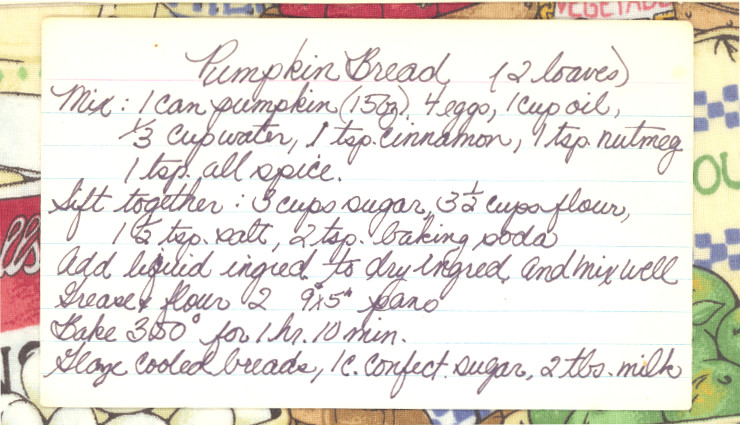 VEGETAB
Pumpkin Bread (2 loaves)
Mix: 1 can pumpkin (15oz), 4 eggs, 1 cup oil,
1/3 cup water, 1 tsp. cinnamon, 1 tsp. nutmeg
1 tsp. all spice.
Sift together: 3 cups sugar, 3 1/2 cups flour,
1 1/2 tsp. salt, 2 tsp. baking soda
Add liquid ingred. to dry ingred. and mix well
Grease & flour 2 9"x5" pans
Bake 350° for 1 hr. 10 min.
Glaze cooled breads, 1c. confect. sugar, 2 tbs. milk